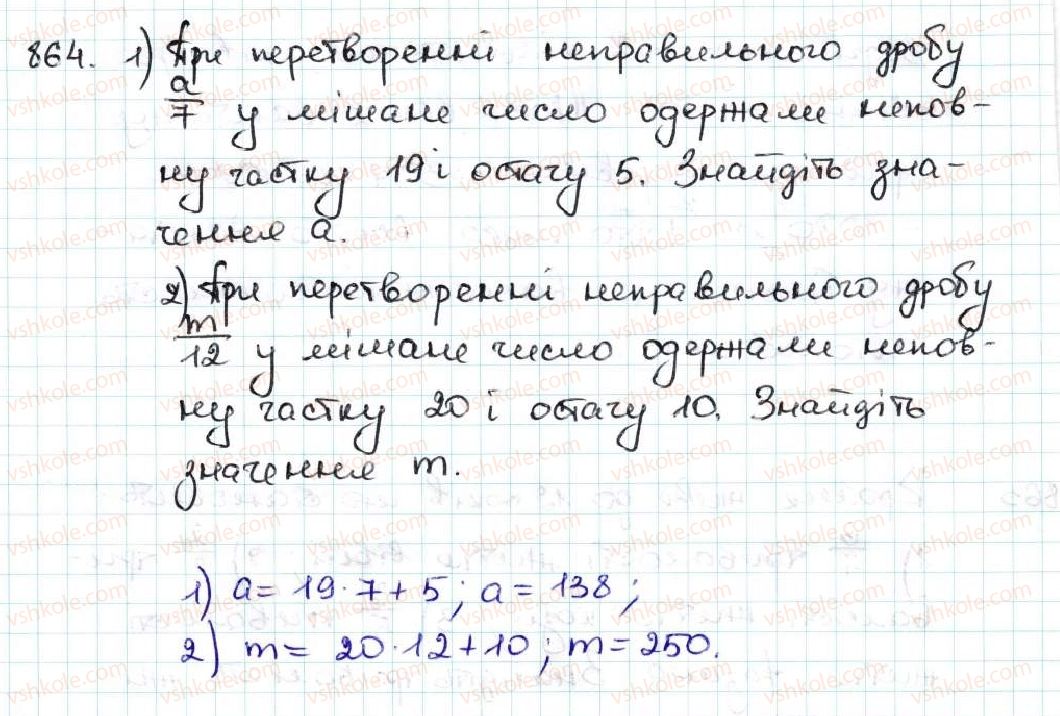 864. 1) При перетворенні неправильного дробу
a/7 у мішане число одержали непов-
ну частку 19 і остачу 5. Знайдіть зна-
чення a.
2) При перетворенні неправильного дробу
m/12 у мішане число одержали непов-
ну частку 20 і остачу 10. Знайдіть
значення m.
1) a = 19·7 + 5; a = 138;
2) m = 20·12 + 10; m = 250.